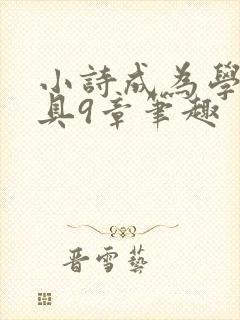 小詩成為學
具9章筆趣
晋雪藝